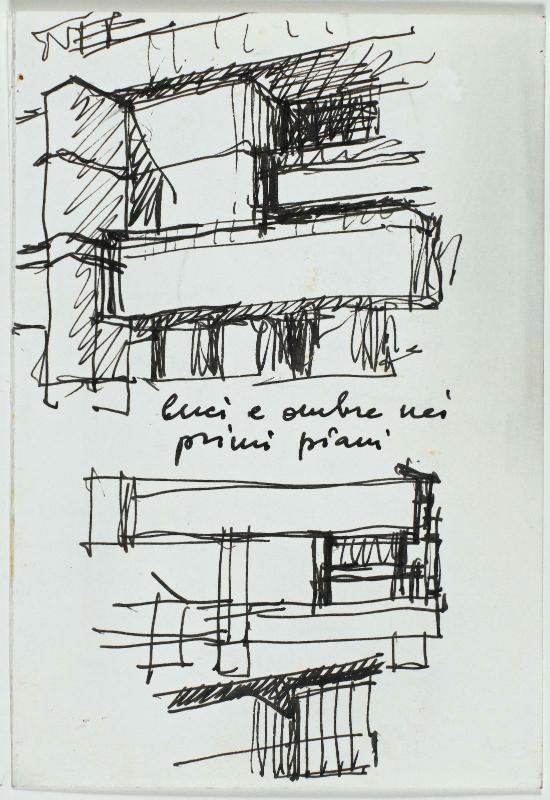 luci e ombre nei
primi piani